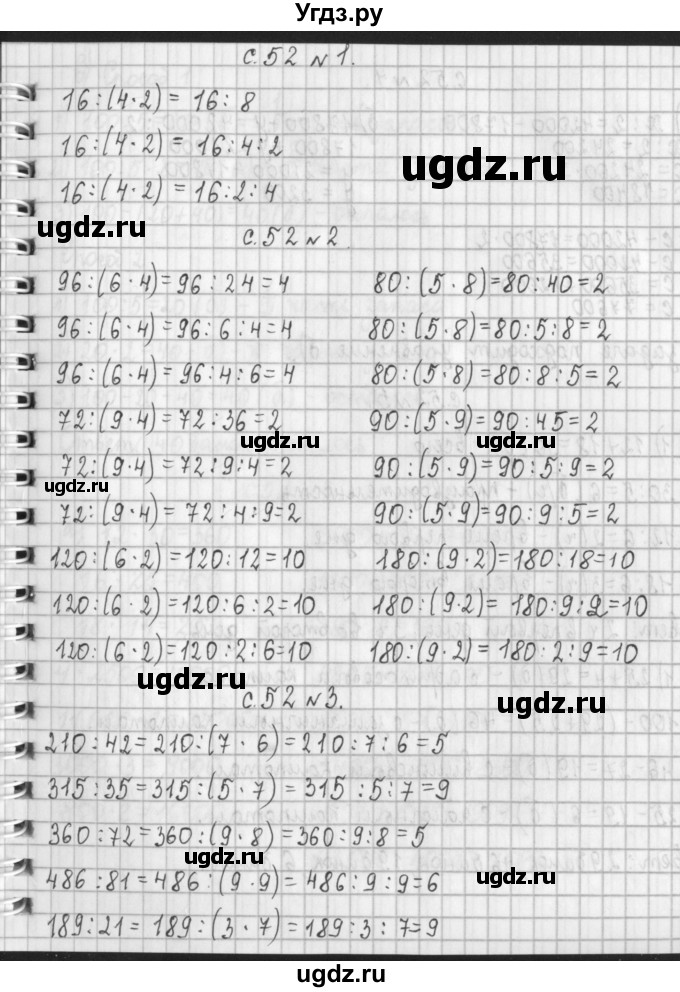 Угдз.ру
с.52 №1.
16:(4·2) = 16:8
16:(4·2) = 16:4:2
ugdz.ru
16:(4·2) = 16:2:4
ugdz.ru
с.52 №2.
96:(6·4)=96:24=4 80:(5·8)=80:40=2
96:(6·4)=96:6:4=4 80:(5·8)=80:5:8=2
96:(6·4)=96:4:6=4 80:(5·8)=80:8:5=2
72:(9·4)=72:36=2 90:(5·9)=90:45=2
ugdz.ru ugdz.ru
72:(9·4)=72:9:4=2 90:(5·9)=90:5:9=2
ugdz.ru
72:(9·4)=72:4:9=2 90:(5·9)=90:9:5=2
120:(6·2)=120:12=10 180:(9·2)=180:18=10
120:(6·2)=120:6:2=10 180:(9·2)=180:9:2=10
120:(6·2)=120:2:6=10 180:(9·2)=180:2:9=10
ugdz.ru
с.52 №3.
ugdz.ru
210:42=210:(7·6)=210:7:6=5
315:35=315:(5·7)=315:5:7=9
360:72=360:(9·8)=360:9:8=5
ugdz.ru
486:81=486:(9·9)=486:9:9=6
ugdz.ru
189:21=189:(3·7)=189:3:7=9
ugdz.ru